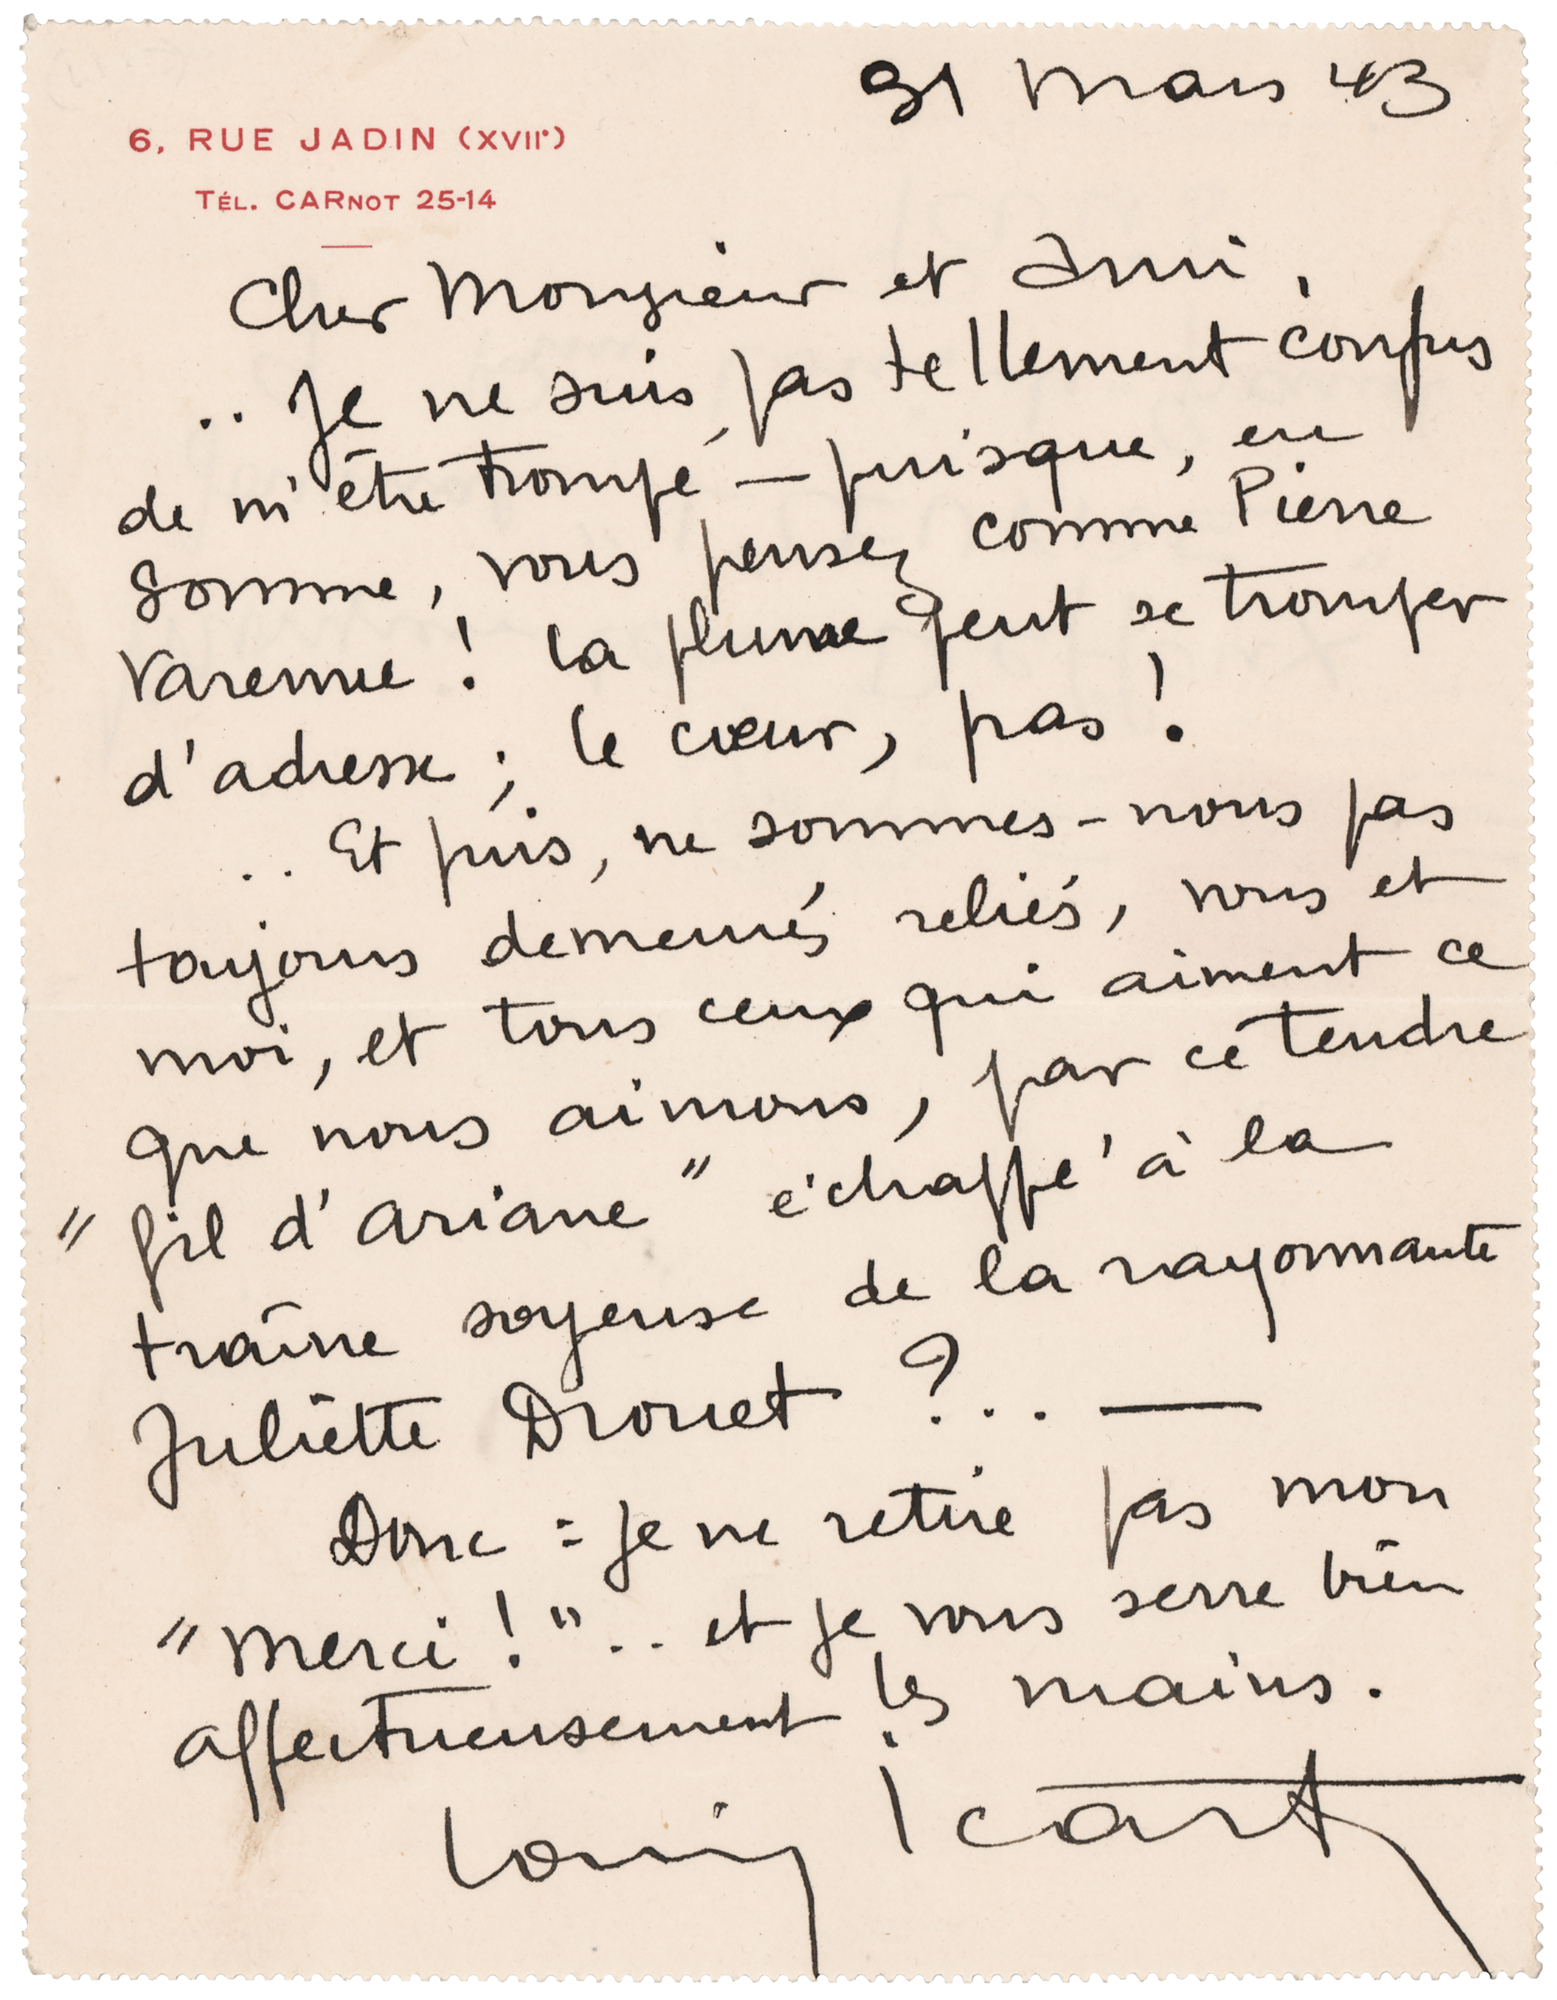 31 mars 43
6, RUE JADIN (XVIIᵉ)
TÉL. CARNOT 25-14
Cher Monsieur et ami,
.. Je ne suis pas tellement confus
de m'être trompé — puisque, en
somme, vous pensez comme Pierre
Varenne ! la plume peut se tromper
d'adresse ; le cœur, pas !
.. Et puis, ne sommes-nous pas
toujours demeurés reliés, vous et
moi, et tous ceux qui aiment ce
que nous aimons, par ce tendre
"fil d'ariane" échappé à la
traîne soyeuse de la rayonnante
Juliette Drouet ?.. —
Donc : je ne retire pas mon
"merci !".. et je vous serre bien
affectueusement les mains.
Louis Icart